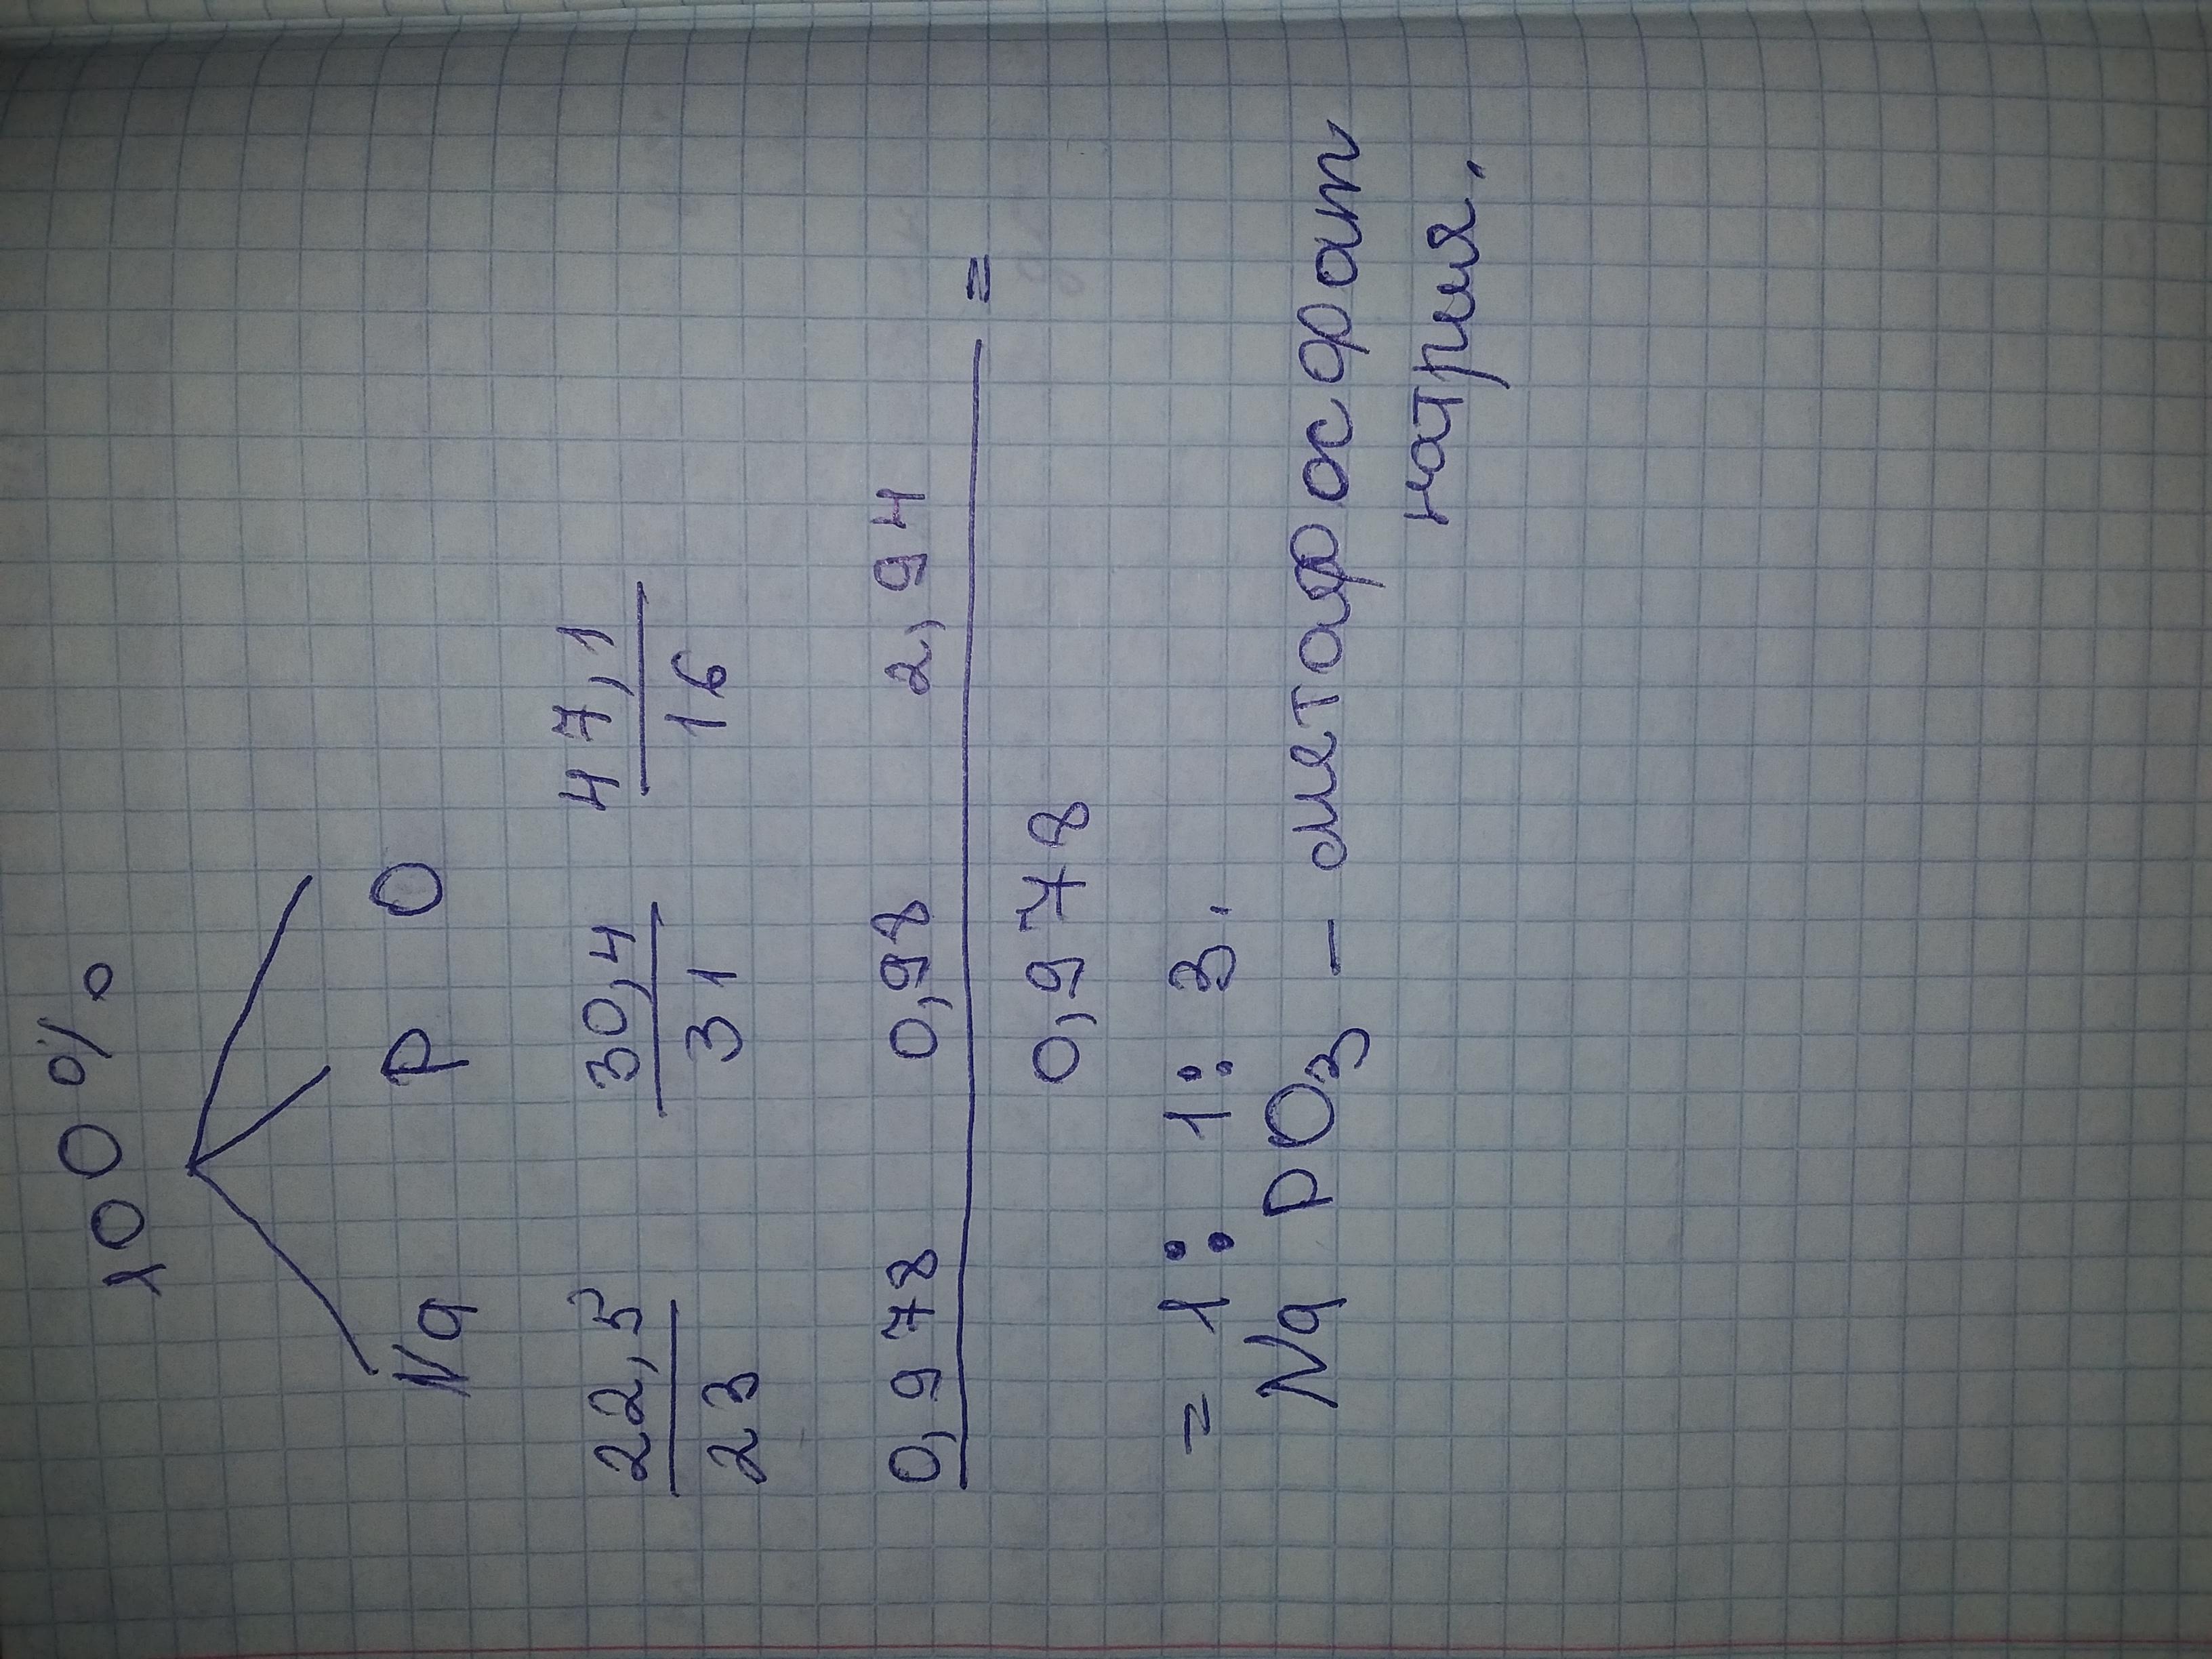 100%
Na P O
22,5 30,4 47,1
23 31 16
0,978 0,98 2,94 =
0,978
= 1 : 1 : 3.
NaPO₃ – метафосфат
натрия.